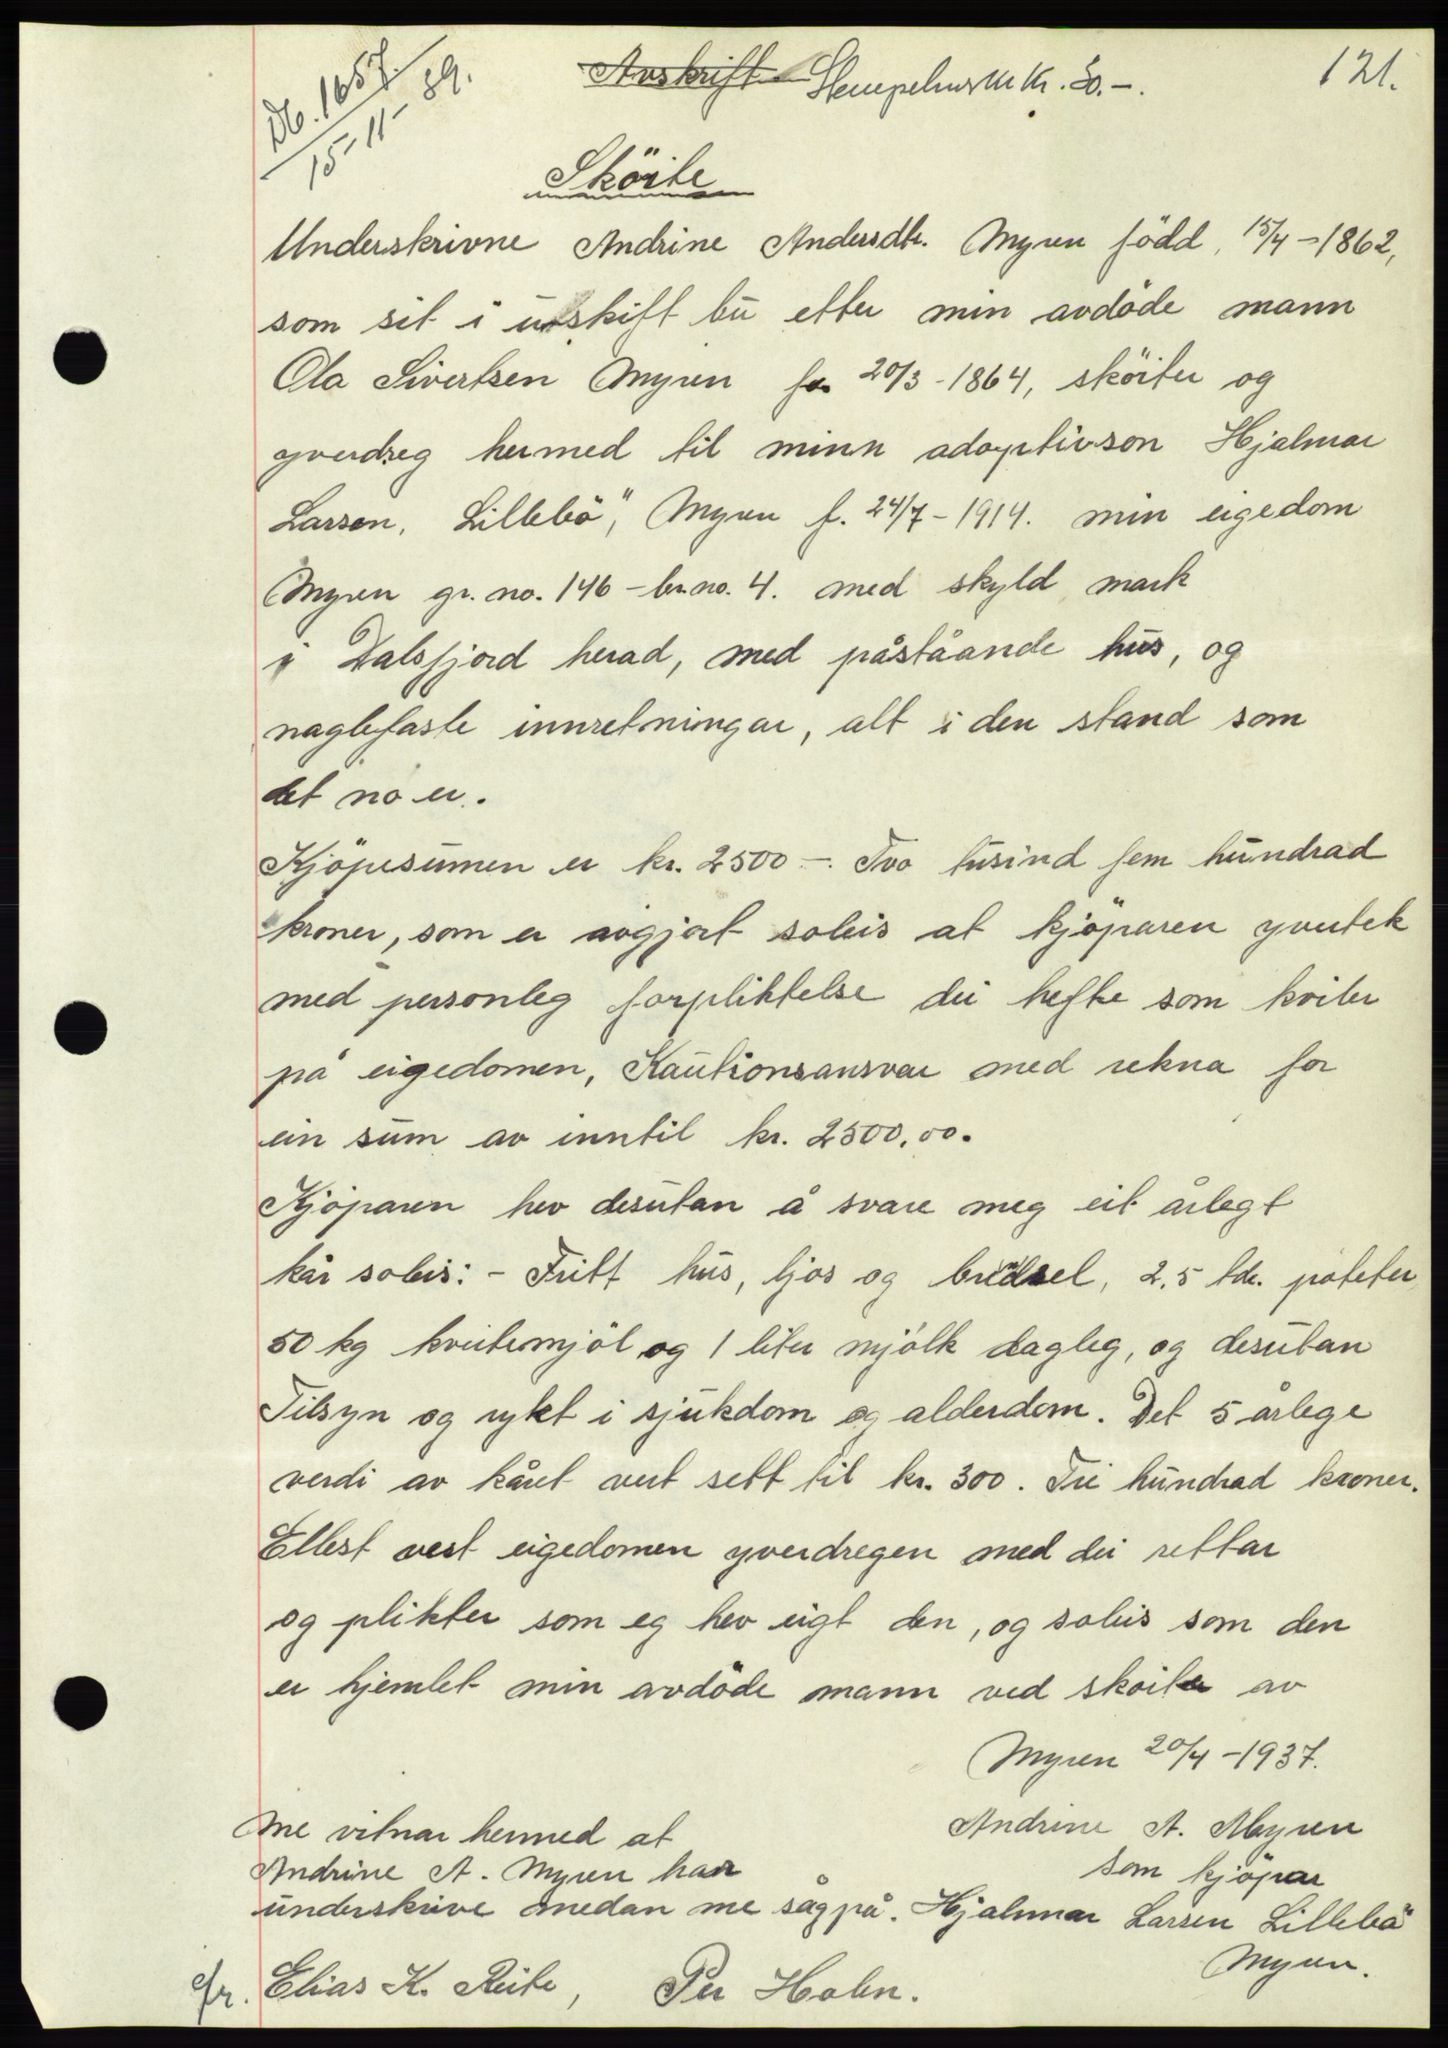 Db. 1657.
15-11-39.
Avskrift Stempelmerke kr. 30.-.
121.
Sköite
Underskrivne Andrine Andersdtr. Myren född, 15/4-1862,
som sit i uskift bu etter min avdöde mann
Ola Sivertsen Myren f. 20/3-1864, sköiter og
yverdreg hermed til minn adoptivson Hjalmar
Larsen, Lillebö", Myren f. 24/7-1914. min eigedom
Myren gr. no. 146 - br.no. 4. med skyld mark
i Dalsfjord herad, med påståande hus, og
naglefaste innretningar, alt i den stand som
det no er.
Kjöpesumen er kr. 2500 -. Two tusind fem hundrad
kroner, som er avgjort soleis at kjöparen yvertek
med personleg forpliktelse dei hefte som kviler
på eigedomen, Kautionsansvar med rekna for
ein sum av inntil kr. 2500.00.
Kjöparen hev desutan å svare meg eit årlegt
kår soleis: - Fritt hus, ljos og brensel, 2,5 tdr. poteter
50 kg kveitemjöl og 1 liter mjölk dagleg, og desutan
Tilsyn og rykt i sjukdom og alderdom. Det 5 årlege
verdi av kåret vert sett til kr. 300. Tri hundrad kroner.
Ellest vert eigedomen yverdregen med dei rettar
og plikter som eg hev eigt den, og soleis som den
er hjemlet min avdöde mann ved sköite av
Myren 20/4-1937.
Me vitnar hermed at
Andrine A. Myren har
underskrive medan me såg på.
Andrine A. Myren
Som kjöpar
Hjalmar Larsen Lillebö
Myren.
Elias K. Reite, Per Holen.